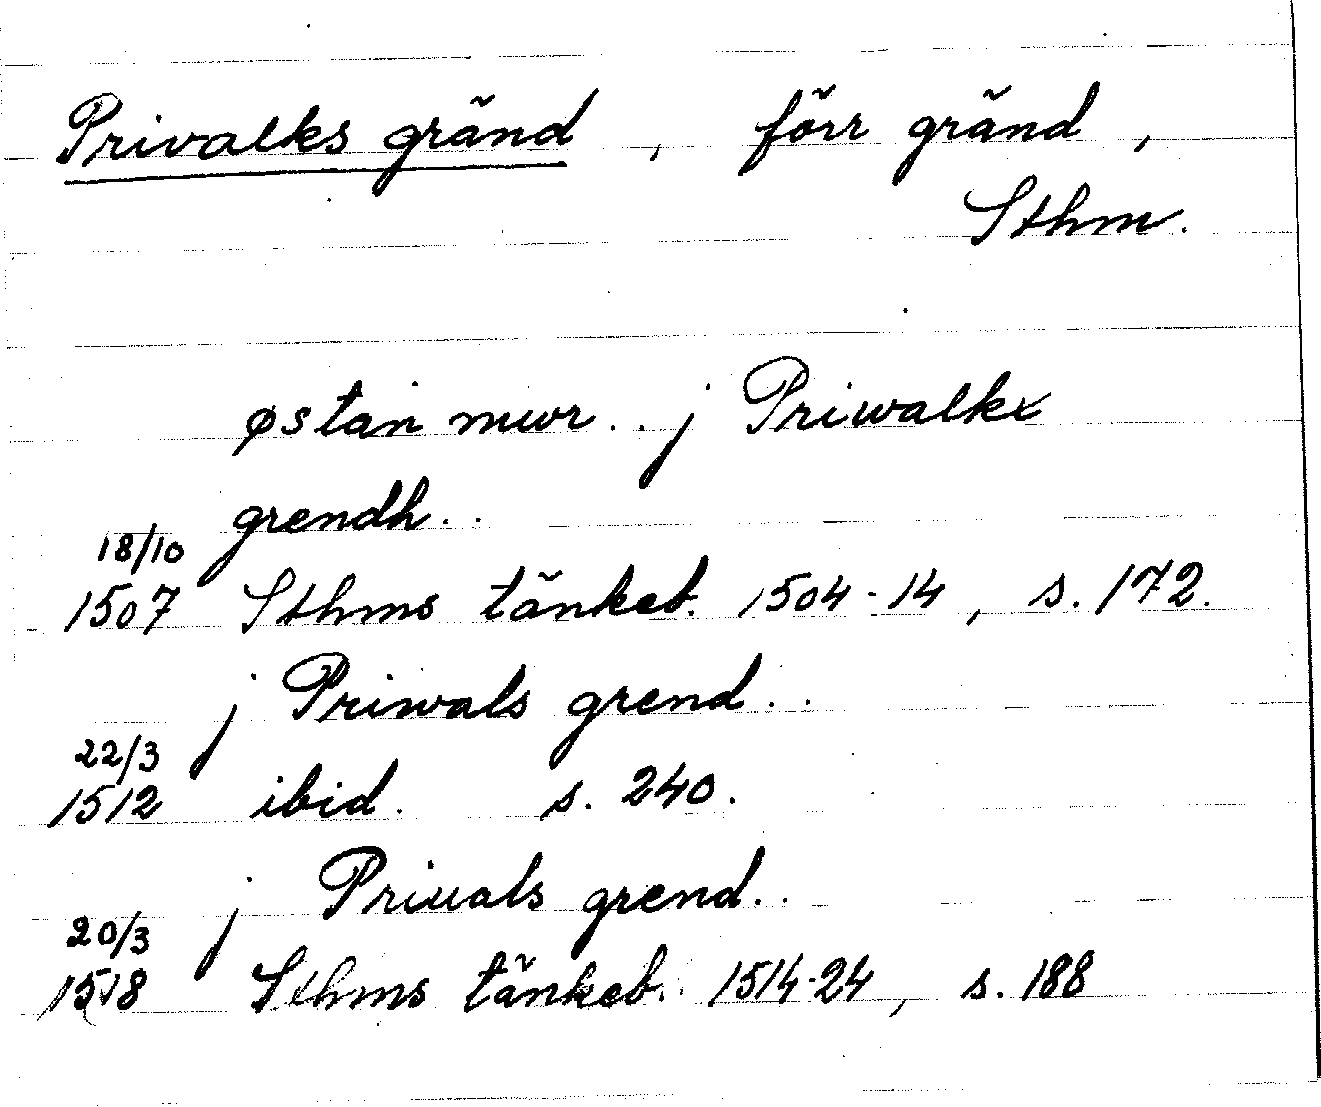 Privalks gränd, förr gränd,
Sthm.
østan mwr.. j Priwalkx
grendh..
18/10
1507 Sthms tänkeb. 1504-14, s. 172.
j Priwals grend..
22/3
1512 ibid. s. 240.
j Priuals grend..
20/3
1518 Sthms tänkeb. 1514-24, s. 188